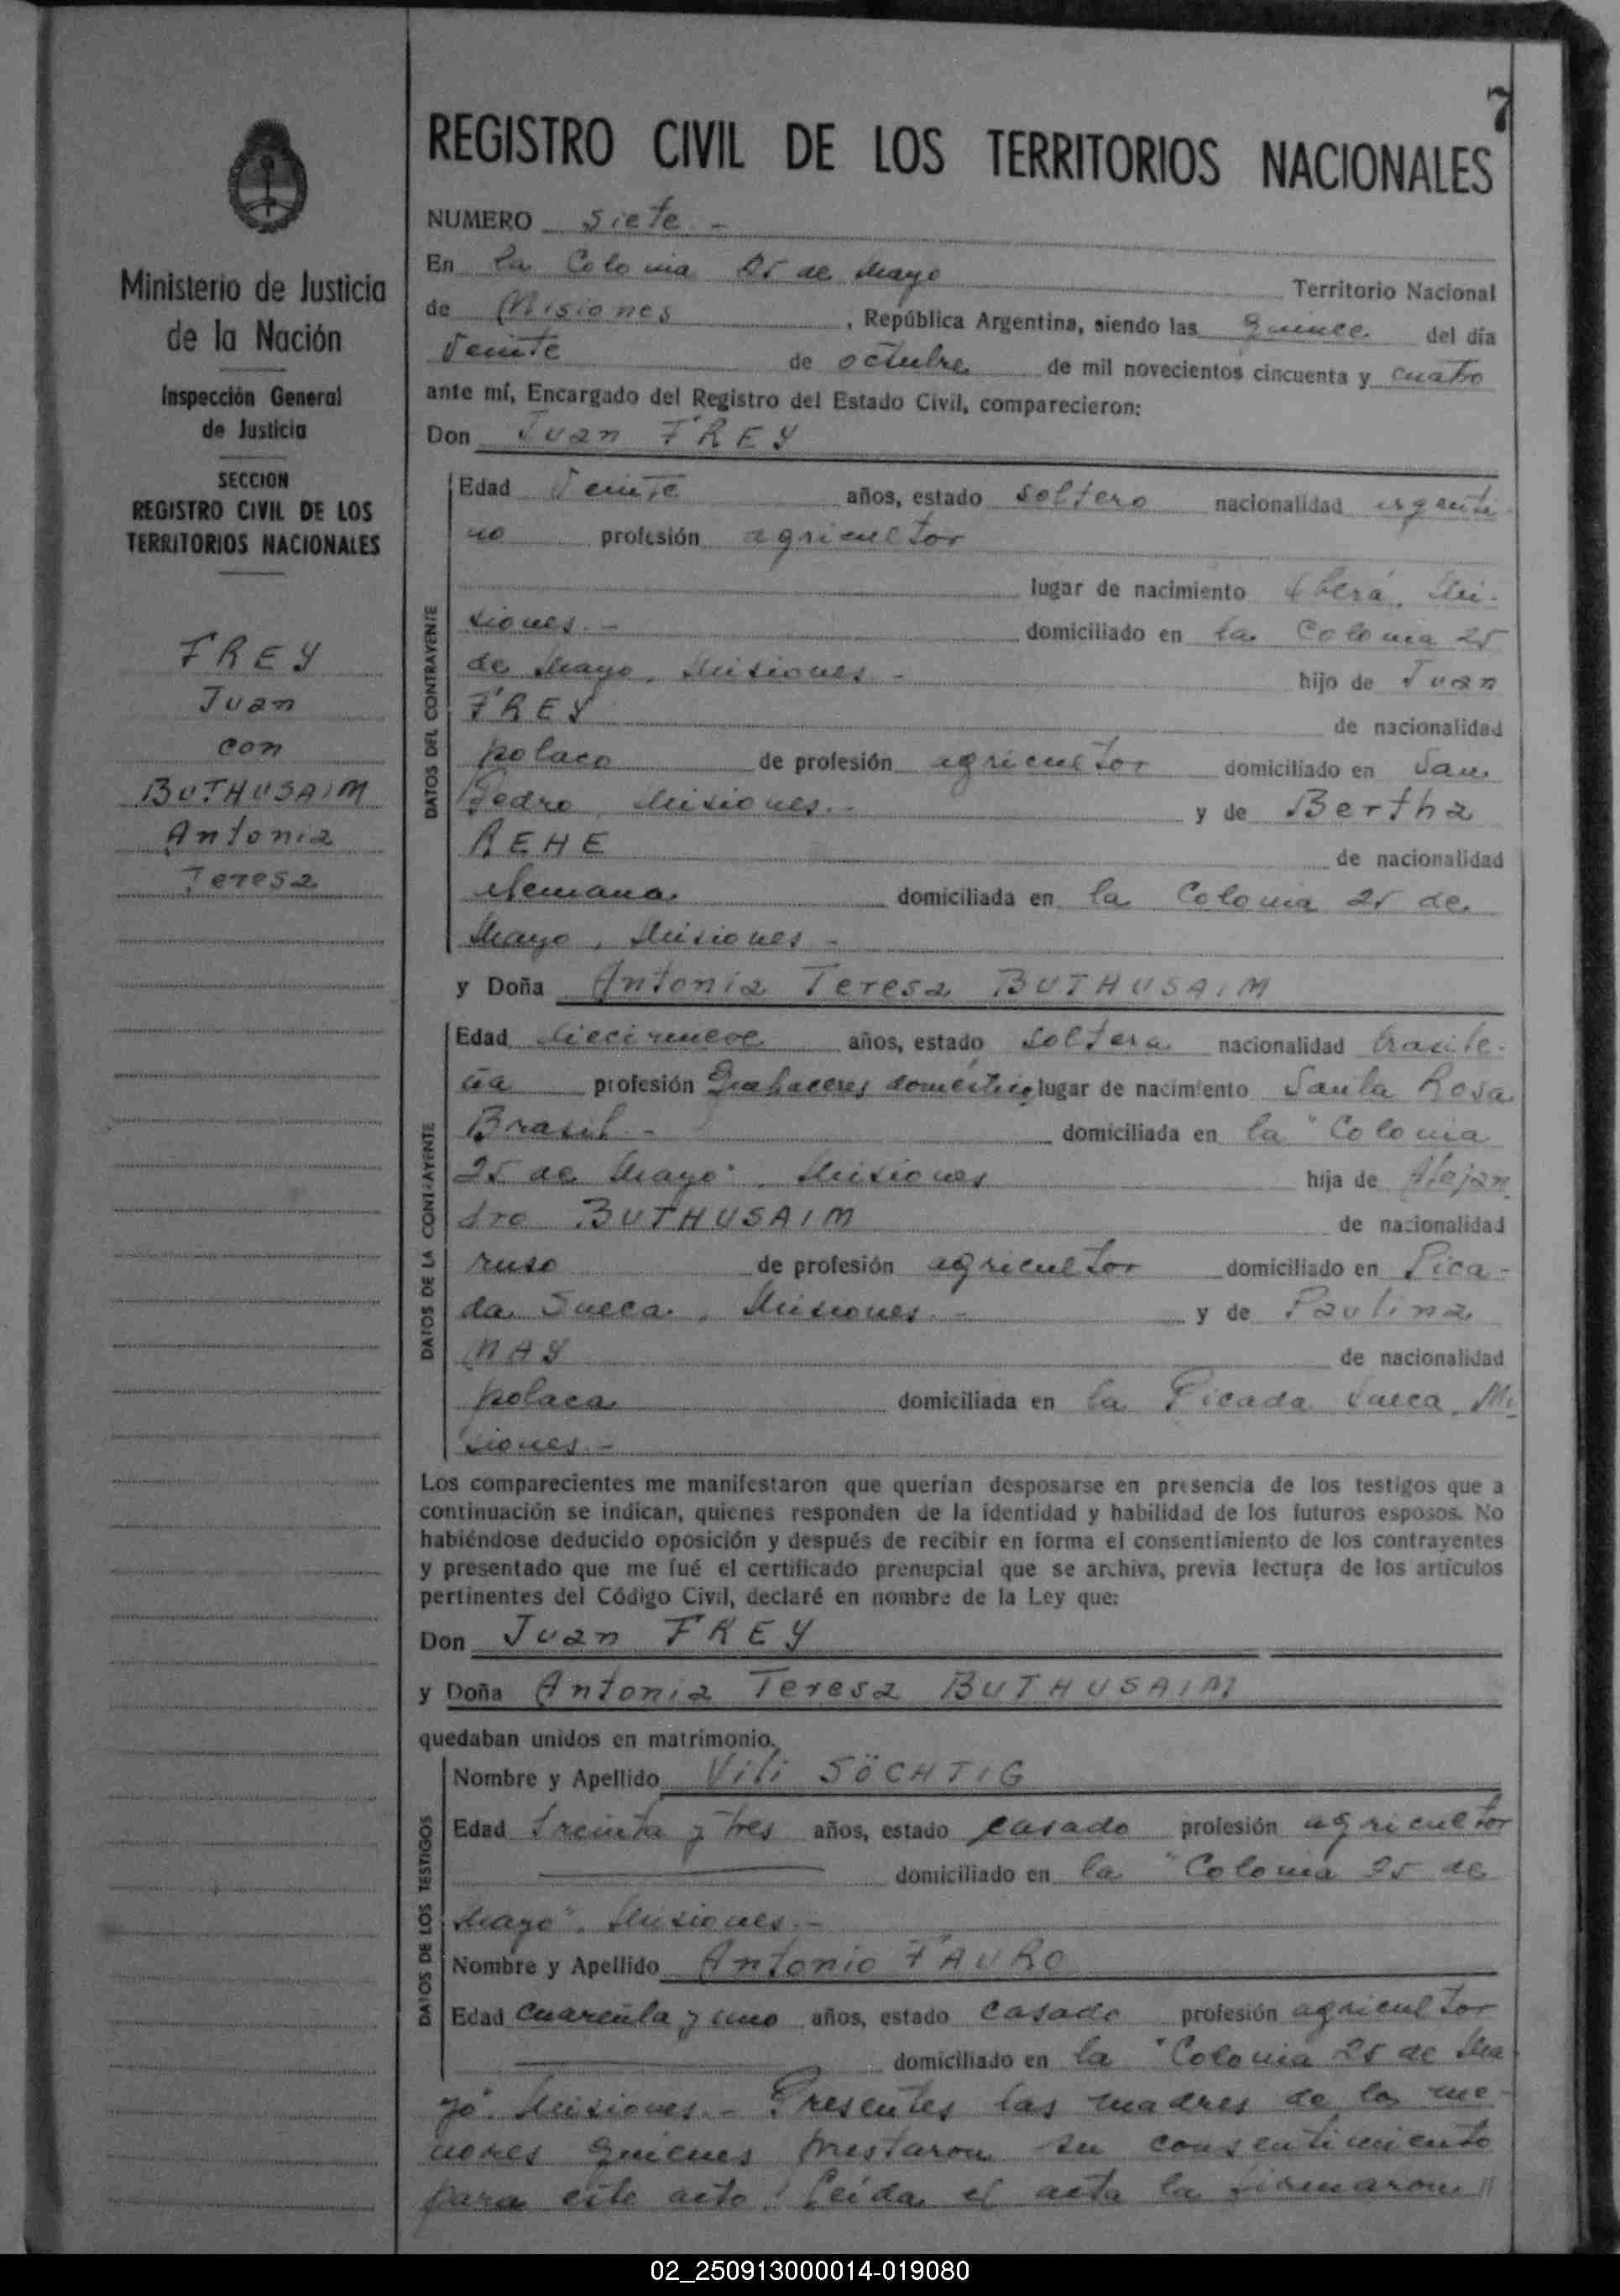 7
REGISTRO CIVIL DE LOS TERRITORIOS NACIONALES
Ministerio de Justicia
de la Nación
Inspección General
de Justicia
SECCION
REGISTRO CIVIL DE LOS
TERRITORIOS NACIONALES
FREY
Juan
con
BUTHUSAIM
Antonia
Teresa
NUMERO siete.-
En la Colonia 25 de Mayo Territorio Nacional
de Misiones, República Argentina, siendo las quince del día
veinte de octubre de mil novecientos cincuenta y cuatro
ante mí, Encargado del Registro del Estado Civil, comparecieron:
Don Juan FREY
DATOS DEL CONTRAYENTE
Edad veinte años, estado soltero nacionalidad argenti
no profesión agricultor
lugar de nacimiento Mi-
siones.- domiciliado en la Colonia 25
de Mayo, Misiones.- hijo de Juan
FREY de nacionalidad
polaco de profesión agricultor domiciliado en San
Pedro, Misiones.- y de Bertha
REHE de nacionalidad
alemana domiciliada en la Colonia 25 de
Mayo, Misiones-
y Doña Antonia Teresa BUTHUSAIM
DATOS DE LA CONTRAYENTE
Edad diecinueve años, estado soltera nacionalidad brasile-
ña profesión Quehaceres domésticos lugar de nacimiento Santa Rosa
Brasil.- domiciliada en la "Colonia
25 de Mayo", Misiones hija de Alejan
dro BUTHUSAIM de nacionalidad
ruso de profesión agricultor domiciliado en Pica-
da Sueca, Misiones.- y de Paulina
NAY de nacionalidad
polaca domiciliada en la Picada Sueca, Mi
siones.-
Los comparecientes me manifestaron que querían desposarse en presencia de los testigos que a
continuación se indican, quienes responden de la identidad y habilidad de los futuros esposos. No
habiéndose deducido oposición y después de recibir en forma el consentimiento de los contrayentes
y presentado que me fué el certificado prenupcial que se archiva, previa lectura de los artículos
pertinentes del Código Civil, declaré en nombre de la Ley que:
Don Juan FREY
y Doña Antonia Teresa BUTHUSAIM
quedaban unidos en matrimonio.
DATOS DE LOS TESTIGOS
Nombre y Apellido Vili SÖCHTIG
Edad treinta y tres años, estado casado profesión agricultor
domiciliado en la "Colonia 25 de
Mayo", Misiones.-
Nombre y Apellido Antonio FAURO
Edad cuarenta y uno años, estado casado profesión agricultor
domiciliado en la "Colonia 25 de Ma
yo". Misiones.- Presentes las madres de los me-
nores quienes prestaron su consentimiento
para este acto. Leída el acta la firmaron //
02_250913000014-019080